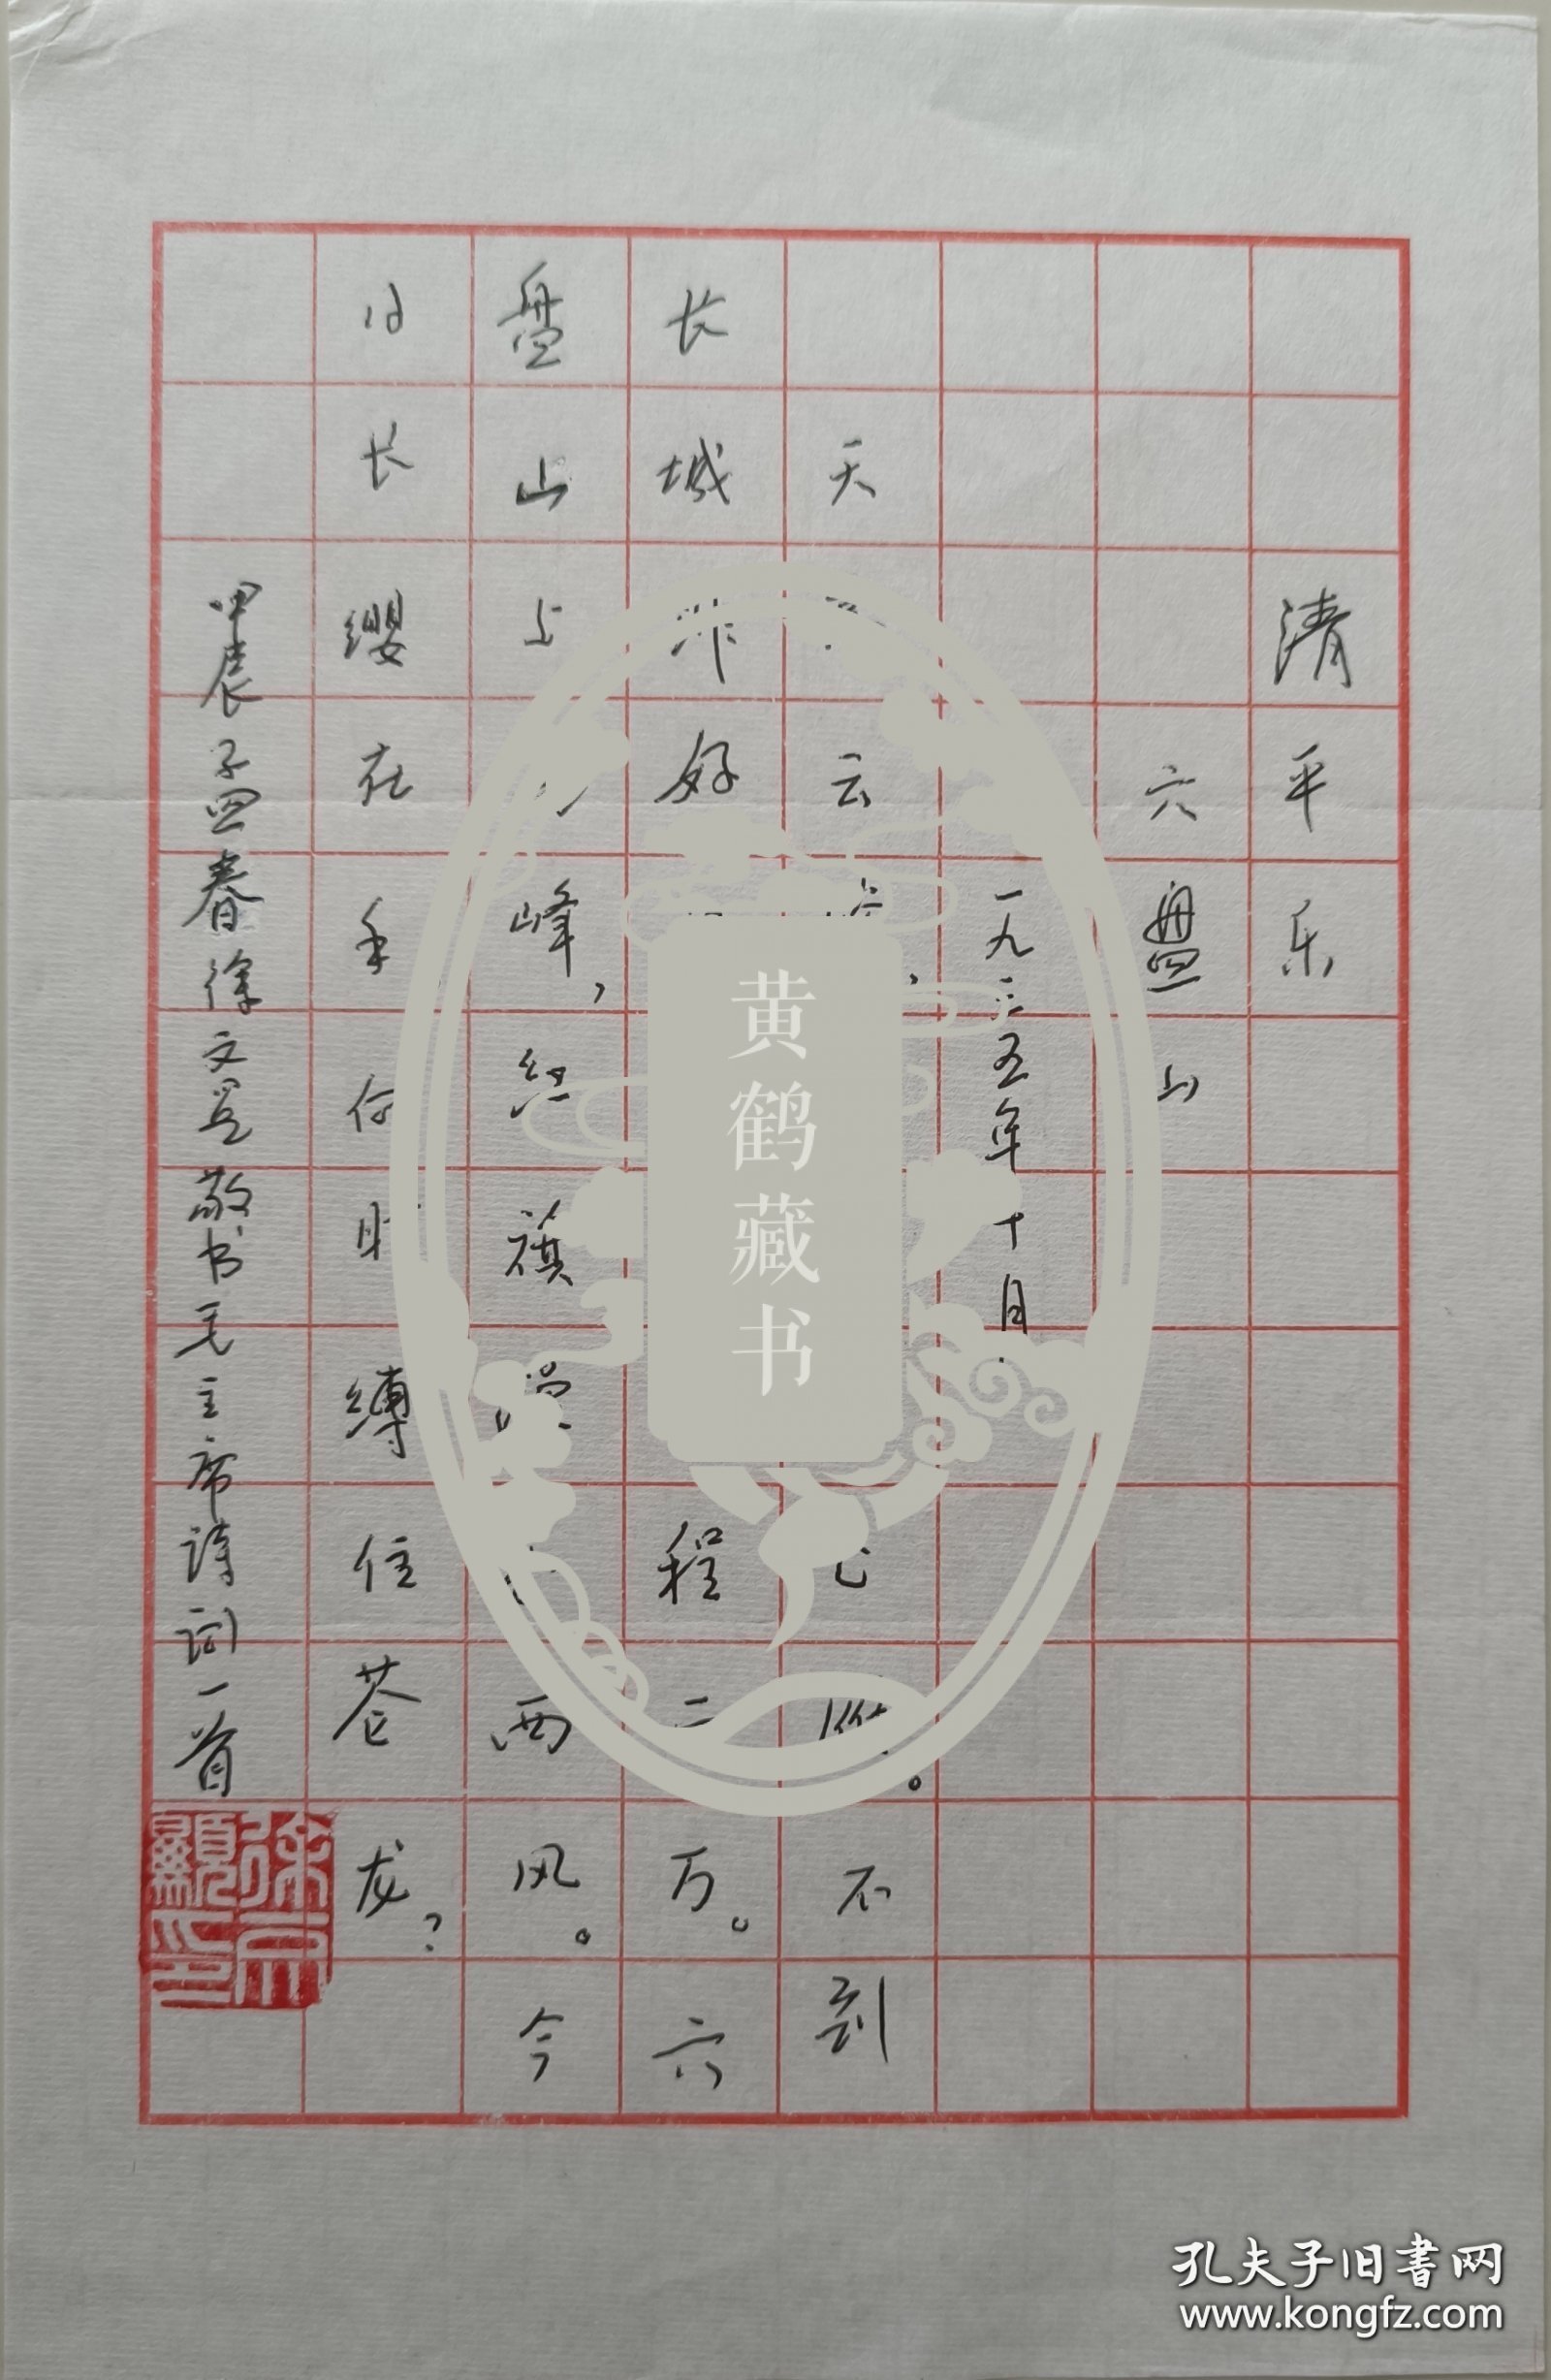 清平乐
六盘山
一九三五年十月.
天云，飞雁。不到
长城非好程二万。六
盘山上峰，红旗漫西风。今
日长缨在手何时缚住苍龙？
甲辰孟春徐文显敬书毛主席诗词一首
徐文顯印
黄鹤藏书
孔夫子旧書网
www.kongfz.com